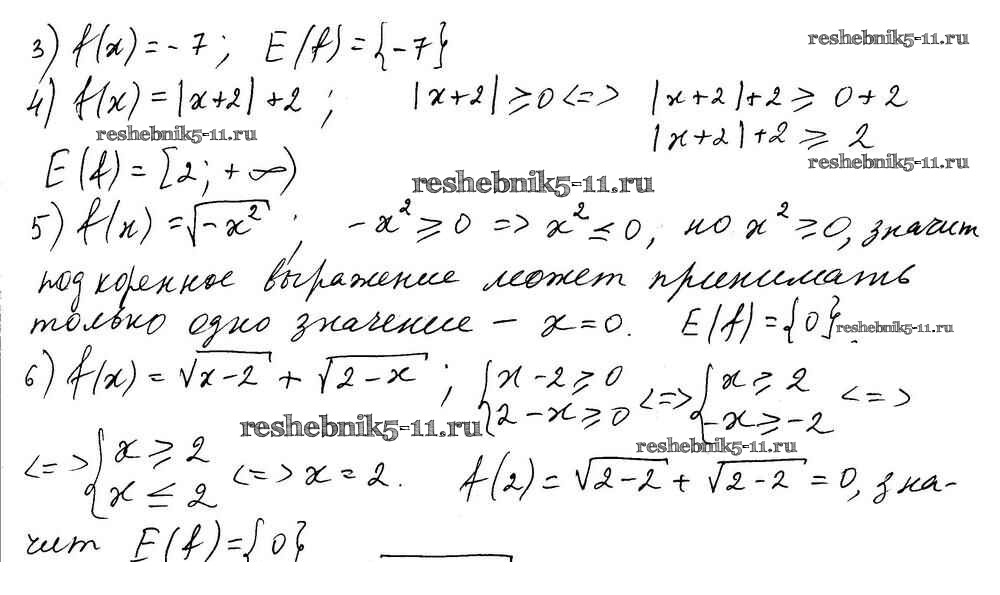 3) f(x) = -7; E(f) = {-7} reshebnik5-11.ru
4) f(x) = |x+2| + 2; |x+2| ≥ 0 <=> |x+2| + 2 ≥ 0 + 2
reshebnik5-11.ru |x+2| + 2 ≥ 2
E(f) = [2; +∞) reshebnik5-11.ru reshebnik5-11.ru
5) f(x) = √(-x²); -x² ≥ 0 => x² ≤ 0, но x² ≥ 0, значит
подкоренное выражение может принимать
только одно значение – x = 0. E(f) = {0}. reshebnik5-11.ru
6) f(x) = √(x-2) + √(2-x); { x-2 ≥ 0 2-x ≥ 0 <=> { x ≥ 2 -x ≥ -2 <=>
reshebnik5-11.ru reshebnik5-11.ru
<=> { x ≥ 2 x ≤ 2 <=> x = 2. f(2) = √(2-2) + √(2-2) = 0, зна-
чит E(f) = {0}